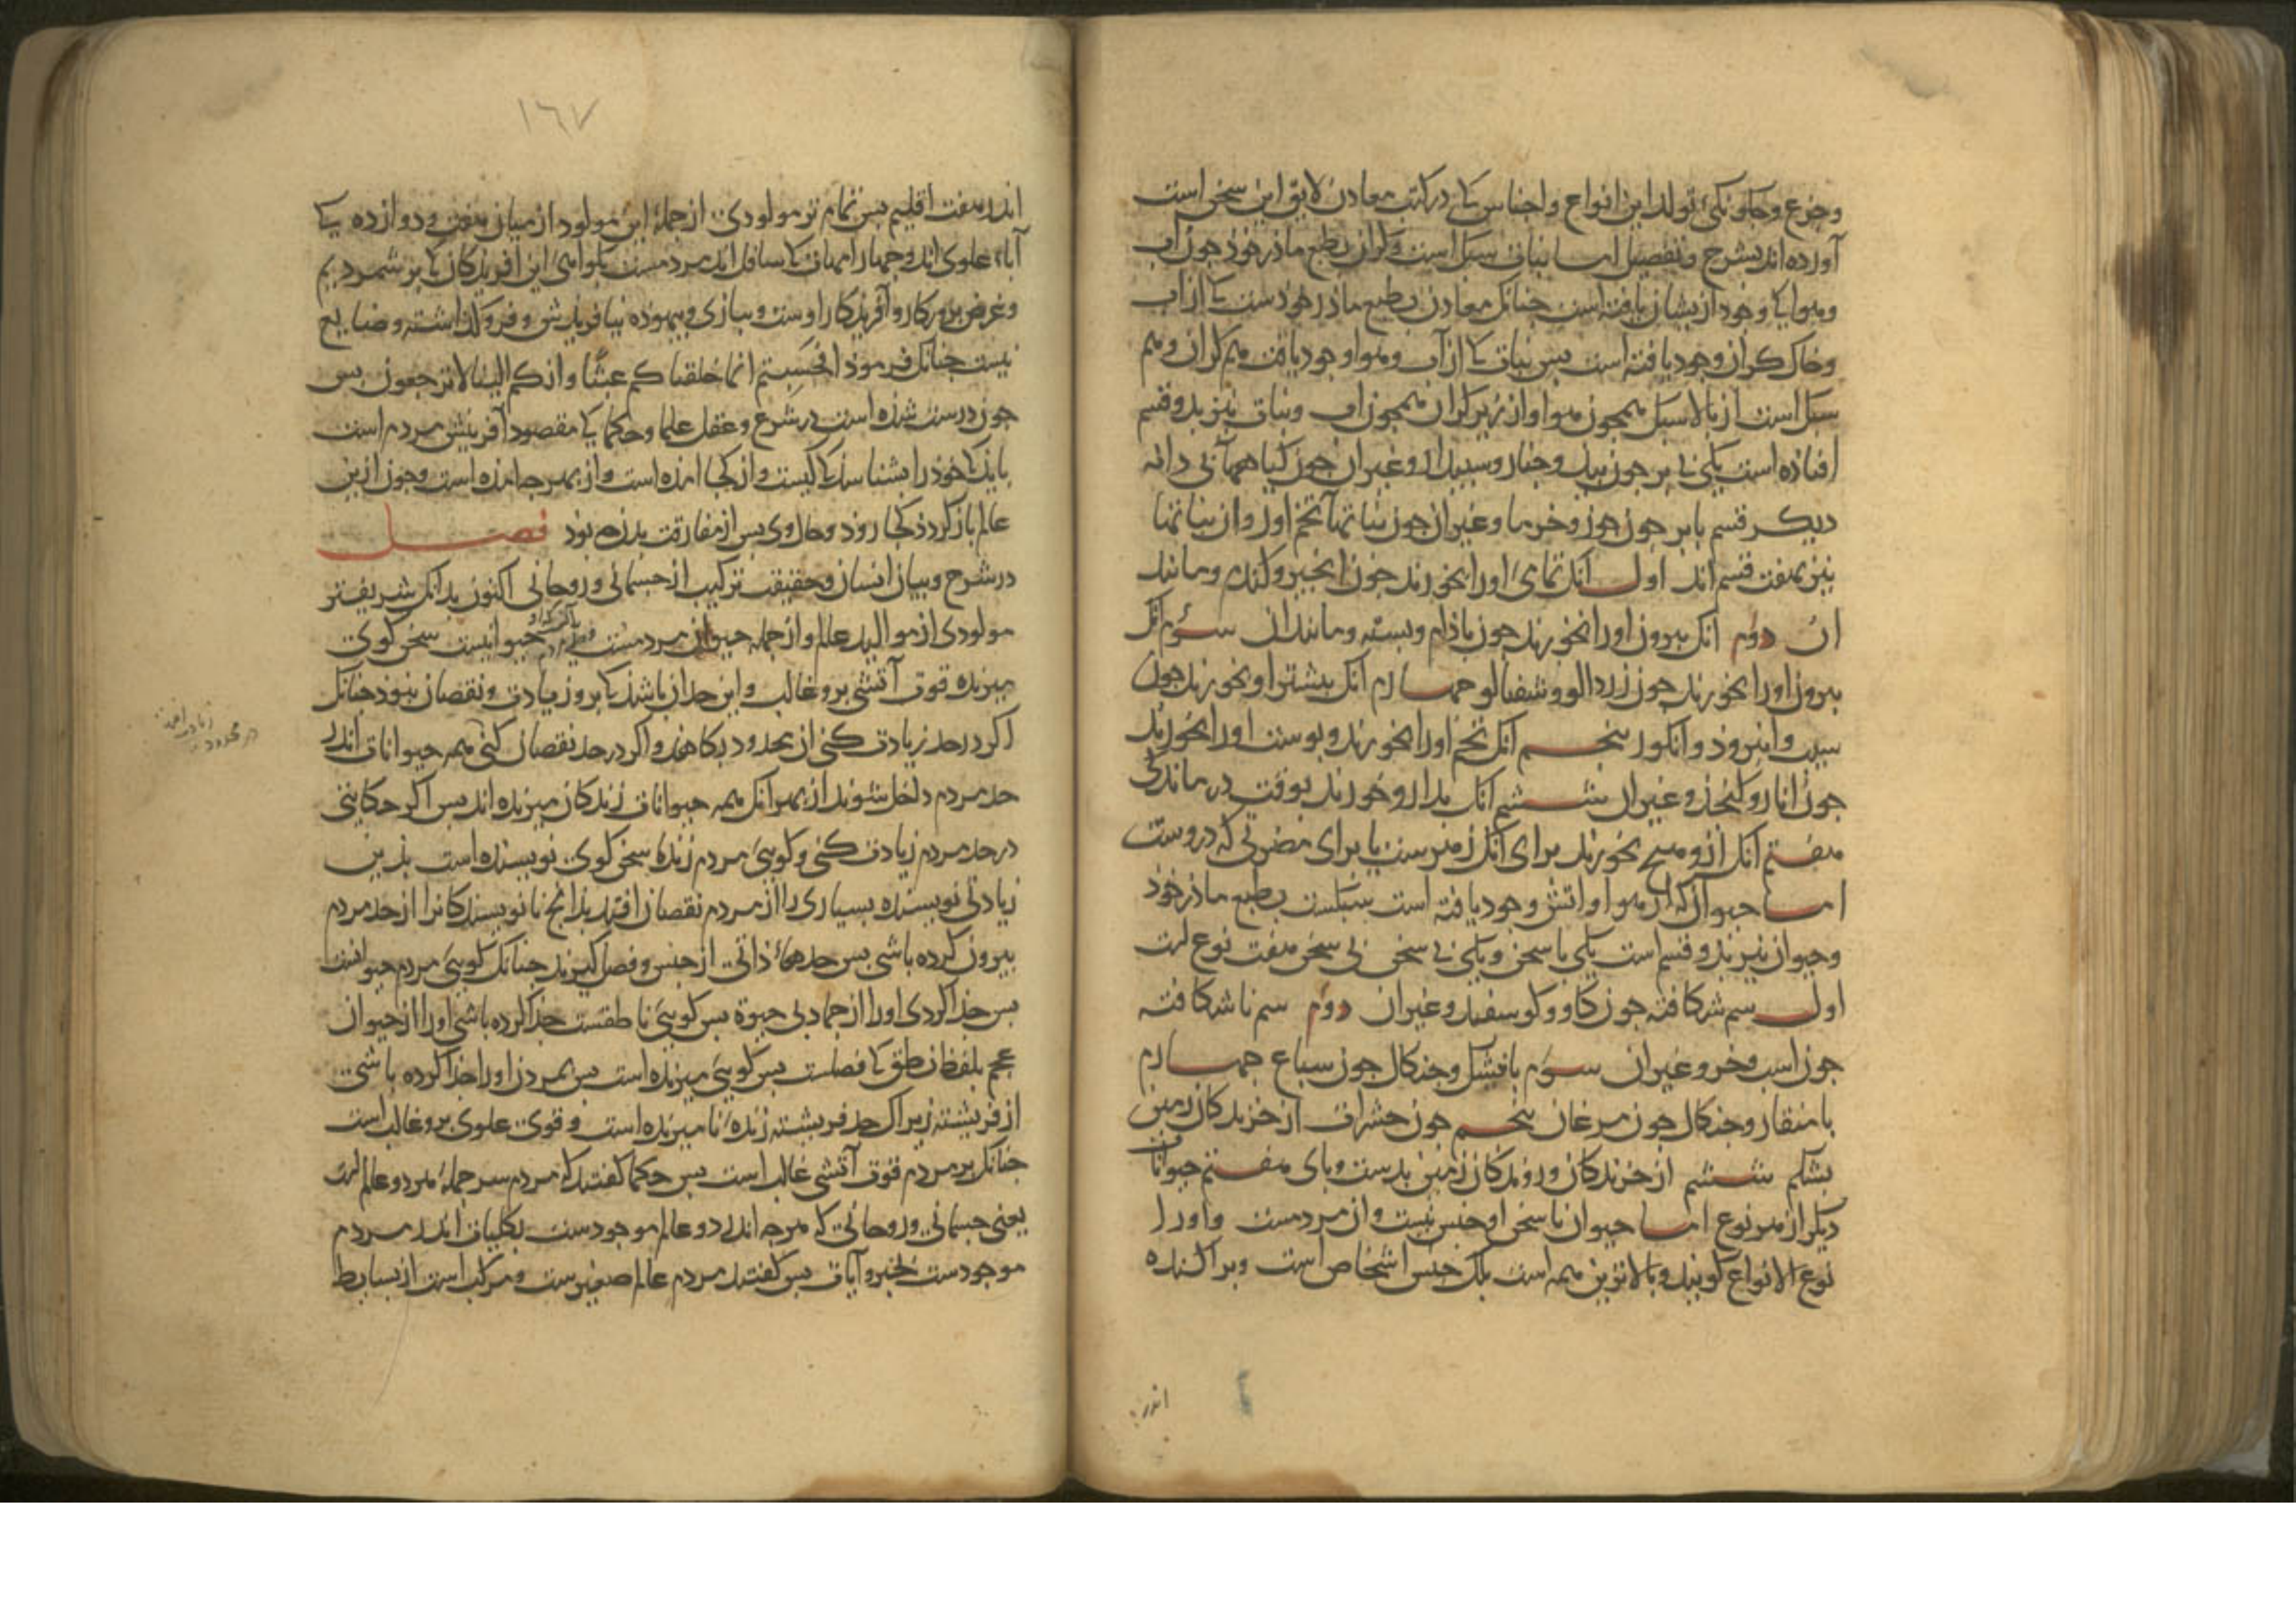 وجزع وچگونگی تولد این انواع و اجناس کی در کتب معادن لایق این سخن است
آورده اند بشرح و تفصیل اما نبات سبک است و گران بطبع مادر خود جون آب
وهوا کا وجود ازیشان یافته است جنانک معادن بطبع مادر خودست کا از آب
وخاک گران وجود یافته است بس نبات کا از آب وهوا وجود یافت هم گران وهم
سبک است از بالا سبک همجون هوا و از زیر گران همجون آب ونبات نیز بدو قسم
افتاذه است یکی بی بر جون بید وجنار وسبیدار وغیر آن جون گیاهها بی دانه
دیکر قسم با بر جون جوز وخرما وغیر آن جون نباتها تخم آور و آن نباتها
نیز بهفت قسم اند اول آنک تمامی اورا بخورند جون انجیر وگندم ومانند
آن دوم آنک بیرون اورا بخورند جون باذام وبسته ومانند آن سوم آنک
بیرون اورا بخورند جون زردالو وشفتالو جهارم آنک بیشتر او بخورند جون
سیب وامرود وانکور بنجم آنک تخم اورا بخورند وبوست اورا بخورند
جون انار و غیر آن ششم آنک بدارو خورند بوقت درماندگی
هفتم آنک ازو هیج نخورند برای آنک زهرست یا برای مضرتی که دروست
اما حیوان که از هوا و آتش وجود یافته است سبکست بطبع مادر خود
وحیوان نیز بدو قسم است یکی با سخن ویکی بی سخن بی سخن هفت نوع است
اول سم شکافته جون گاو وگوسفند وغیر آن دوم سم ناشکافته
جون اسب وخر وغیر آن سوم با وجنکال جون سباع جهارم
با منقار وجنکال جون مرغان بنجم جون حشرات از خزندکان زمین
بشکم ششم از خزندکان وروندکان زمین بدست وبای هفتم حیوانات
دیکر از هر نوع اما حیوان با سخن او جنس نیست وآن مردمست واورا
نوع الانواع کویند وبالا تزین همه است بلک جنس اشخاص است وبراکنده
اندر
١٦٧
اندر هفت اقلیم بس تمام تر مولودی از جمله این مولود از میان هفت ودوازده کی
آباء علوی اند وجهار امهات کا سافل اند مردمست بکواهی این آفریدکان کا بر شمردیم
وغرض برورکار وآفریدکار اوست وببازی وبیهوده نیافریدش وفرو کذاشته وضایع
نیست جنانک فرموذ افحسبتم انما خلقناکم عبثا وانکم الینا لا ترجعون بس
جون درست شذه است در شرع وعقل علما وحکما کی مقصود آفرینش مردم است
بایذ کا خوذ را بشناسذ کا کیست واز کجا آمذه است واز بهر جه آمذه است وجون ازین
عالم باز گردذ کجا روذ وحال وی بس از مفارقت بدن جه بوذ فصل
در شرح وبیان انسان وحقیقت ترکیب از جسمانی وروحانی اکنون بدانک شریفتر
مولودی از موالید عالم واز جمله حیوان مردمست حیوانیست سخن کوی
میرنده قوت آتشی برو غالب واین حد آن باشذ کا برو زیادت ونقصان نبوذ جنانک
اکر در حد زیادت کنی از محدود بکاهد واکر در حد نقصان کنی همه حیوانات اندر
حد مردم داخل شوند از بهر آنک همه حیوانات زندکان میرنده اند بس اکر حکایتی
در حد مردم زیادت کنی وکویی مردم زنده سخن کوی نویسنده است بذین
زیادتی نویسنده بسیاری را از مردم نقصان افتد بدانج نانویسندکانرا از حد مردم
بیرون کرده باشی بس حدهاء ذاتی از جنس وفصل کیرند جنانک کویی مردم حیوانست
بس جذا کردی اورا از جماد بی حیوة بس کویی ناطقست جذا کرده باشی اورا از حیوان
عجم بلفظ ناطق کا فصلست بس کویی میرنده است بس بمردن اورا جذا کرده باشی
از فریشته زیرا ک حد فریشته زنده نا میرنده است وقوت علوی برو غالب است
جنانک بر مردم قوت آتشی غالب است بس حکما کفتند که مردم سر جمله هر دو عالم است
یعنی جسمانی وروحانی که هرجه اندر دو عالم موجودست بکلیات اندر مردم
موجودست بجزویات بس کفتند مردم عالم صغیرست ومرکب است از بسایط
زیادت
در محدود